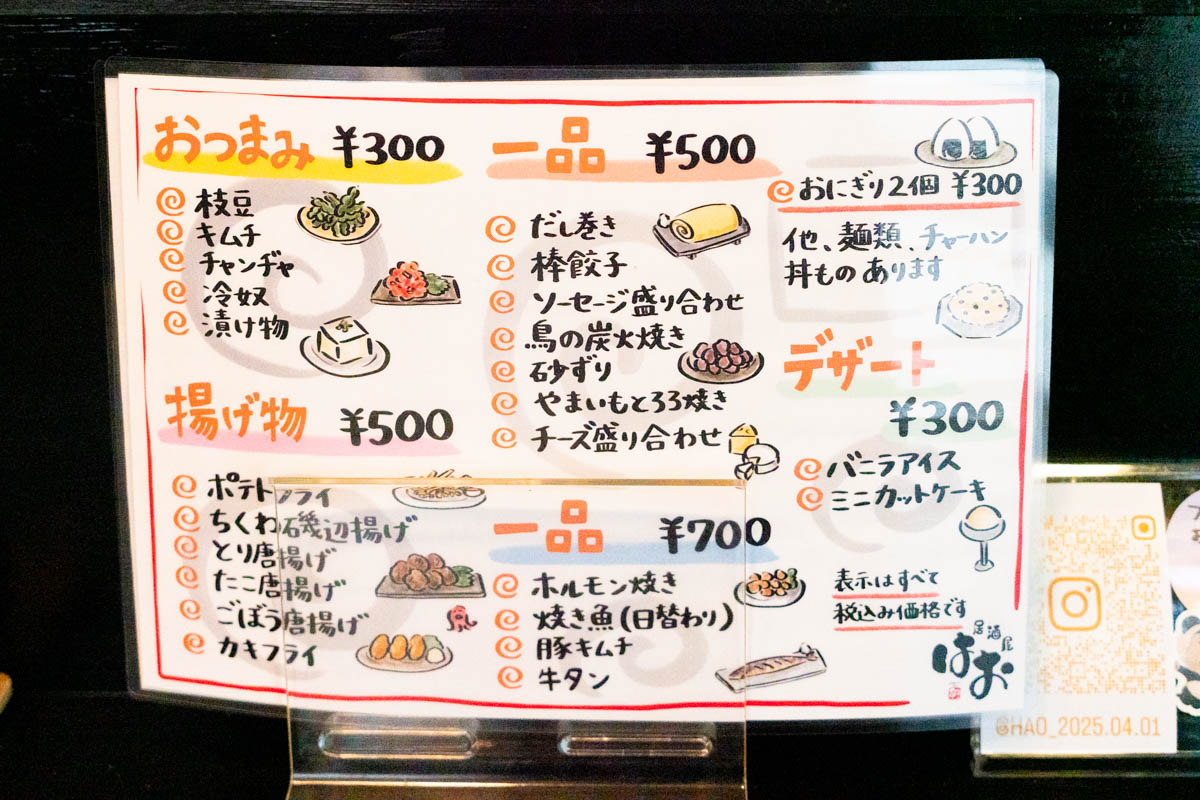 おつまみ ¥300
枝豆
キムチ
チャンヂャ
冷奴
漬け物
揚げ物 ¥500
ポテトフライ
ちくわ磯辺揚げ
とり唐揚げ
たこ唐揚げ
ごぼう唐揚げ
カキフライ
一品 ¥500
だし巻き
棒餃子
ソーセージ盛り合わせ
鳥の炭火焼き
砂ずり
やまいもとろろ焼き
チーズ盛り合わせ
一品 ¥700
ホルモン焼き
焼き魚(日替わり)
豚キムチ
牛タン
おにぎり2個 ¥300
他、麺類、チャーハン
丼ものあります
デザート
¥300
バニラアイス
ミニカットケーキ
表示はすべて
税込み価格です
居酒屋
はお
@HAO_2025.04.01